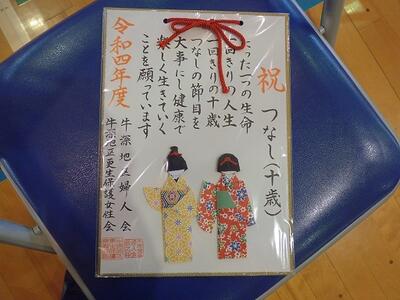 祝 つなし(十歳)
たった一つの生命
一回きりの人生
一回きりの十歳
つなしの節目を
大事にし健康で
楽しく生きていく
ことを願っています
令和四年度
牛深地区婦人会
牛深地区更生保護女性会